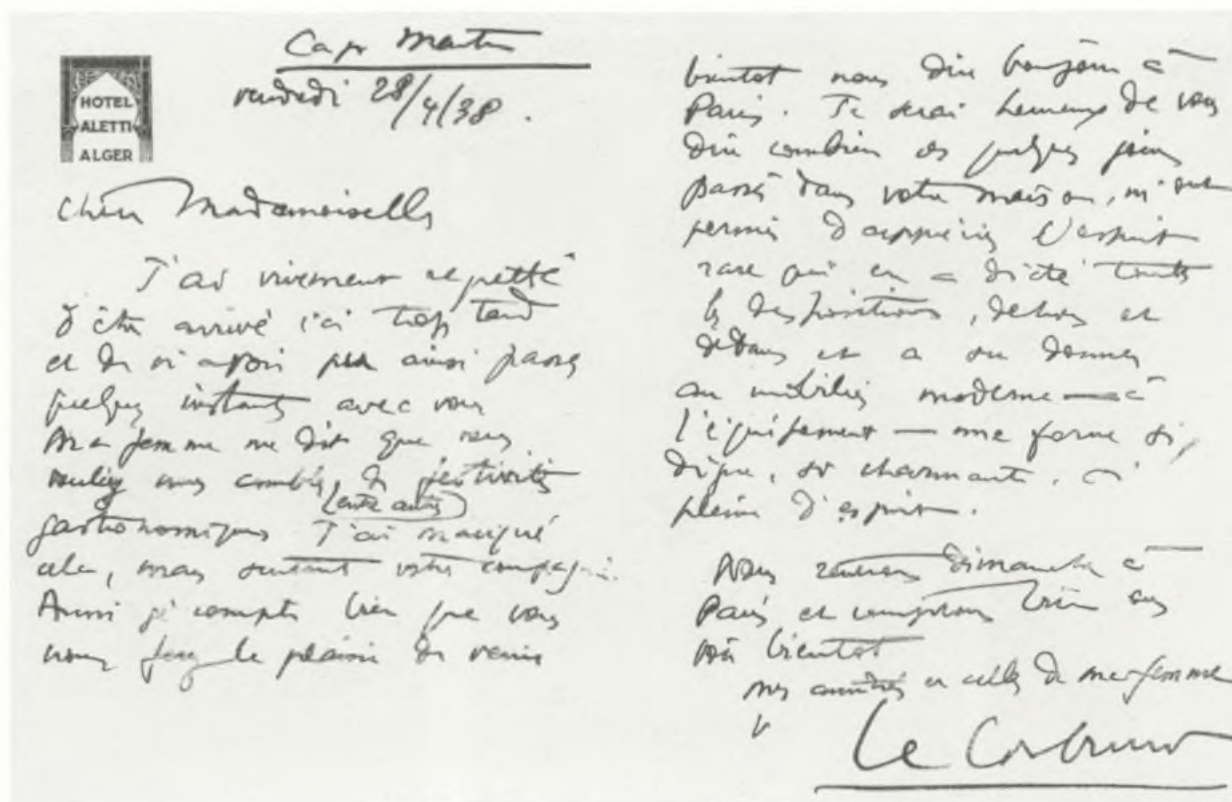 HOTEL
ALETTI
ALGER
Cap Martin
vendredi 28/4/38.
Chère Mademoiselle
J'ai vivement regretté
d'être arrivé ici trop tard
et de n'avoir pu ainsi passer
quelques instants avec vous
Ma femme me dit que vous
vouliez nous combler de festivités
(entre autres)
gastronomiques J'ai manqué
cela, mais surtout votre compagnie.
Aussi je compte bien que vous
nous ferez le plaisir de venir
bientot nous dire bonjour à
Paris. Je serai heureux de vous
dire combien ces quelques jours
passés dans votre maison, m'ont
permis d'apprécier l'esprit
rare qui en a dicté toutes
les dispositions, dehors et
dedans et a su donner
au mobilier moderne — à
l'équipement — une forme si
digne, si charmante, si
pleine d'esprit.
Nous rentrons dimanche à
Paris et comptons bien vous
voir bientot
mes amitiés et celles de ma femme
Le Corbusier